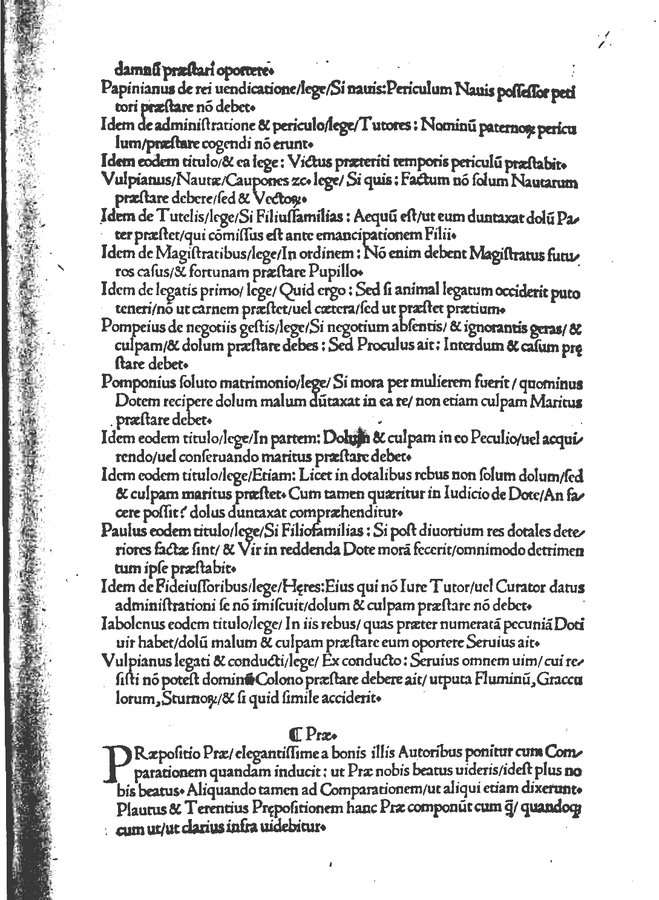 damnū præstari oportere.
Papinianus de rei uendicatione/lege/Si nauis:Periculum Nauis possessor peti
tori præstare nō debet.
Idem de administratione & periculo/lege/Tutores: Nominū paternoꝝ pericu
lum/præstare cogendi nō erunt.
Idem eodem titulo/& ea lege: Victus præteriti temporis periculū præstabit.
Vulpianus/Nautæ/Caupones ⁊c. lege/ Si quis: Factum nō solum Nautarum
præstare debere/sed & Vectoꝝ.
Idem de Tutelis/lege/Si Filiusfamilias: Aequū est/ut eum duntaxat dolū Pa/
ter præstet/qui cōmissus est ante emancipationem Filii.
Idem de Magistratibus/lege/In ordinem: Nō enim debent Magistratus futu/
ros casus/& fortunam præstare Pupillo.
Idem de legatis primo/ lege/ Quid ergo: Sed si animal legatum occiderit puto
teneri/nō ut carnem præstet/uel cætera/sed ut præstet prætium.
Pompeius de negotiis gestis/lege/Si negotium absentis/ & ignorantis geras/ &
culpam/& dolum præstare debes: Sed Proculus ait: Interdum & casum prę
stare debet.
Pomponius soluto matrimonio/lege/ Si mora per mulierem fuerit/ quominus
Dotem recipere dolum malum dūtaxat in ea re/ non etiam culpam Maritus
præstare debet.
Idem eodem titulo/lege/In partem: Dolum & culpam in eo Peculio/uel acqui/
rendo/uel conseruando maritus præstare debet.
Idem eodem titulo/lege/Etiam: Licet in dotalibus rebus non solum dolum/sed
& culpam maritus præstet. Cum tamen quæritur in Iudicio de Dote/An fa/
cere possit? dolus duntaxat compræhenditur.
Paulus eodem titulo/lege/Si Filiofamilias: Si post diuortium res dotales dete/
riores factæ sint/ & Vir in reddenda Dote morā fecerit/omnimodo detrimen
tum ipse præstabit.
Idem de Fideiussoribus/lege/Hęres:Eius qui nō Iure Tutor/uel Curator datus
administrationi se nō imiscuit/dolum & culpam præstare nō debet.
Iabolenus eodem titulo/lege/ In iis rebus/ quas præter numeratā pecuniā Doti
uir habet/dolū malum & culpam præstare eum oportere Seruius ait.
Vulpianus legati & conducti/lege/ Ex conducto: Seruius omnem uim/ cui re/
sisti nō potest dominū Colono præstare debere ait/ utputa Fluminū, Graccu
lorum, Sturnoꝝ/& si quid simile acciderit.
⁋ Præ.
PRæpositio Præ/ elegantissime a bonis illis Autoribus ponitur cum Com/
parationem quandam inducit: ut Præ nobis beatus uideris/idest plus no
bis beatus. Aliquando tamen ad Comparationem/ut aliqui etiam dixerunt.
Plautus & Terentius Prępositionem hanc Præ componūt cum q̄/ quandoqꝫ
cum ut/ut clarius infra uidebitur.